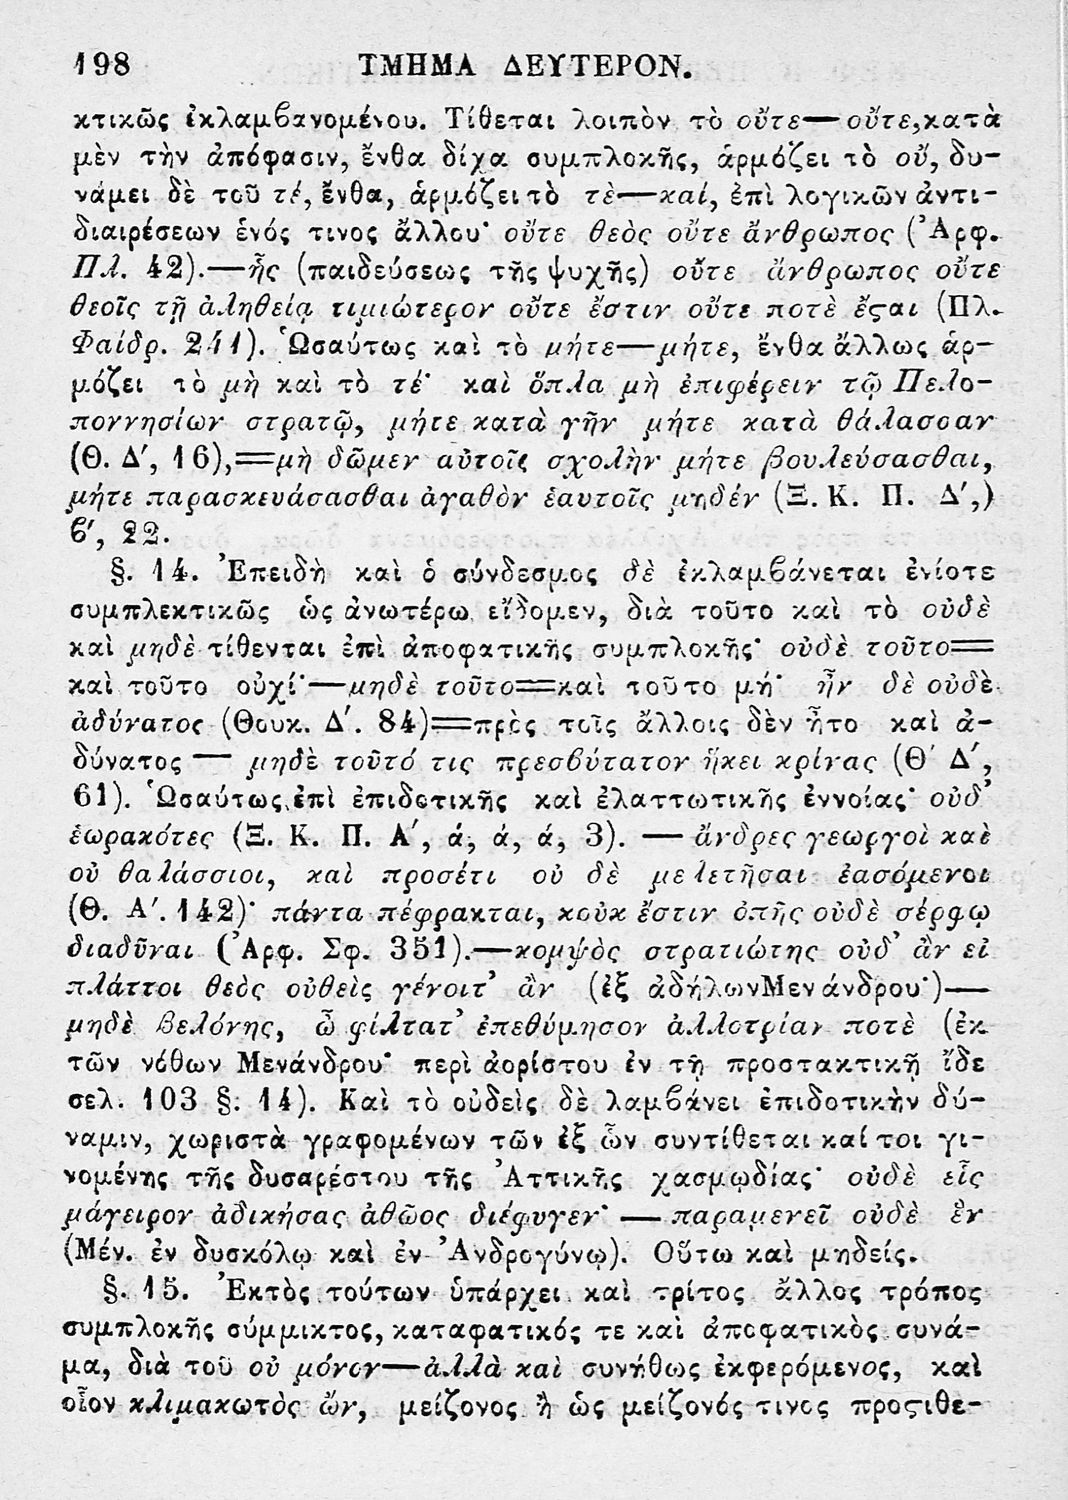 198 ΤΜΗΜΑ ΔΕΥΤΕΡΟΝ.
κτικῶς ἐκλαμβανομένου. Τίθεται λοιπὸν τὸ οὔτε—οὔτε, κατὰ
μὲν τὴν ἀπόφασιν, ἔνθα δίχα συμπλοκῆς, ἁρμόζει τὸ οὔ, δυ-
νάμει δὲ τοῦ τέ, ἔνθα, ἁρμόζει τὸ τὲ—καί, ἐπὶ λογικῶν ἀντι-
διαιρέσεων ἑνός τινος ἄλλου· οὔτε θεὸς οὔτε ἄνθρωπος (Ἀρφ.
Πλ. 42).—ἧς (παιδεύσεως τῆς ψυχῆς) οὔτε ἄνθρωπος οὔτε
θεοῖς τῇ ἀληθείᾳ τιμιώτερον οὔτε ἔστιν οὔτε ποτὲ ἔϛαι (Πλ.
Φαίδρ. 241). Ὡσαύτως καὶ τὸ μήτε—μήτε, ἔνθα ἄλλως ἁρ-
μόζει τὸ μὴ καὶ τὸ τέ· καὶ ὅπλα μὴ ἐπιφέρειν τῷ Πελο-
ποννησίων στρατῷ, μήτε κατὰ γῆν μήτε κατὰ θάλασσαν
(Θ. Δ′, 16),=μὴ δῶμεν αὐτοῖς σχολὴν μήτε βουλεύσασθαι,
μήτε παρασκευάσασθαι ἀγαθὸν ἑαυτοῖς μηδέν (Ξ. Κ. Π. Δ′,)
β′, 22.
§. 14. Ἐπειδὴ καὶ ὁ σύνδεσμος δὲ ἐκλαμβάνεται ἐνίοτε
συμπλεκτικῶς ὡς ἀνωτέρω εἴδομεν, διὰ τοῦτο καὶ τὸ οὐδὲ
καὶ μηδὲ τίθενται ἐπὶ ἀποφατικῆς συμπλοκῆς· οὐδὲ τοῦτο=
καὶ τοῦτο οὐχί·—μηδὲ τοῦτο=καὶ τοῦτο μή· ἦν δὲ οὐδὲ
ἀδύνατος (Θουκ. Δ′. 84)=πρὸς τοῖς ἄλλοις δὲν ἦτο καὶ ἀ-
δύνατος — μηδὲ τοῦτό τις πρεσβύτατον ἥκει κρίνας (Θ′ Δ′,
61). Ὡσαύτως ἐπὶ ἐπιδοτικῆς καὶ ἐλαττωτικῆς ἐννοίας· οὐδ’
ἑωρακότες (Ξ. Κ. Π. Α′, ά, ά, ά, 3). — ἄνδρες γεωργοὶ καὶ
οὐ θαλάσσιοι, καὶ προσέτι οὐ δὲ μελετῆσαι ἐασόμενοι
(Θ. Α′. 142)· πάντα πέφρακται, κοὐκ ἔστιν ὀπῆς οὐδὲ σέρφῳ
διαδῦναι (Ἀρφ. Σφ. 351).—κομψὸς στρατιώτης οὐδ’ ἂν εἰ
πλάττοι θεὸς οὐθεὶς γένοιτ’ ἂν (ἐξ ἀδήλων Μενάνδρου·)—
μηδὲ βελόνης, ὦ φίλτατ’ ἐπεθύμησον ἀλλοτρίαν ποτὲ (ἐκ
τῶν νόθων Μενάνδρου· περὶ ἀορίστου ἐν τῇ προστακτικῇ ἴδε
σελ. 103 §: 14). Καὶ τὸ οὐδεὶς δὲ λαμβάνει ἐπιδοτικὴν δύ-
ναμιν, χωριστὰ γραφομένων τῶν ἐξ ὧν συντίθεται καί τοι γι-
νομένης τῆς δυσαρέστου τῆς Ἀττικῆς χασμῳδίας· οὐδὲ εἷς
μάγειρον ἀδικήσας ἀθῶος διέφυγεν· — παραμενεῖ οὐδὲ ἓν
(Μέν. ἐν δυσκόλῳ καὶ ἐν Ἀνδρογύνῳ). Οὕτω καὶ μηδείς.
§. 15. Ἐκτὸς τούτων ὑπάρχει καὶ τρίτος ἄλλος τρόπος
συμπλοκῆς σύμμικτος, καταφατικός τε καὶ ἀποφατικὸς συνά-
μα, διὰ τοῦ οὐ μόνον—ἀλλὰ καὶ συνήθως ἐκφερόμενος, καὶ
οἷον κλιμακωτὸς ὤν, μείζονος ἢ ὡς μείζονός τινος προϛιθε-